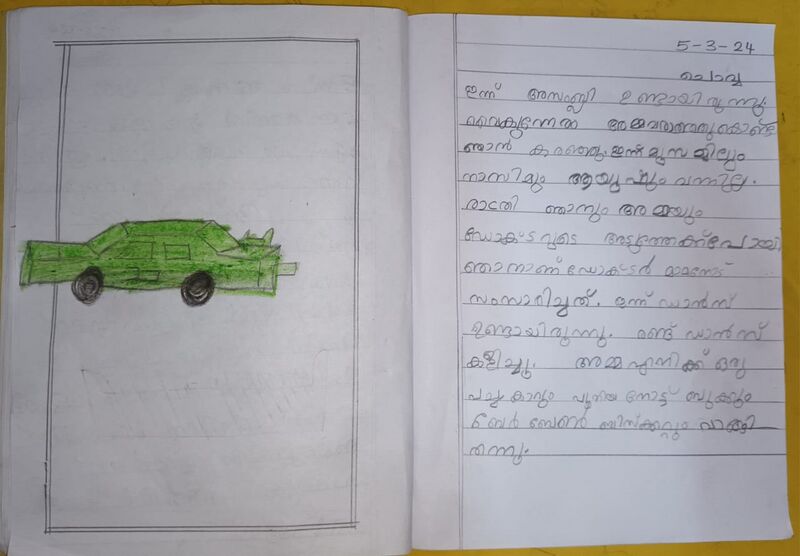 5-3-24
ചൊവ്വ
ഇന്ന് അസംബ്ലി ഉണ്ടായിരുന്നു.
വൈകുന്നേരം അമ്മ വരാത്തതുകൊണ്ട്
ഞാൻ കരഞ്ഞു. ഇന്ന് മൂസ മില്ലും
നാസിമും ആയുഷും വന്നില്ല.
രാത്രി ഞാനും അമ്മയും
ഡോക്ടറുടെ അടുത്തേക്ക് പോയി
ഞാനാണ് ഡോക്ടർ മാമനോട്
സംസാരിച്ചത്. ഇന്ന് ഡാൻസ്
ഉണ്ടായിരുന്നു. രണ്ട് ഡാൻസ്
കളിച്ചു. അമ്മ എനിക്ക് ഒരു
പച്ച കാറും പുതിയ നോട്ട് ബുക്കും
ബിസ്ക്കറ്റും വാങ്ങി
തന്നു.